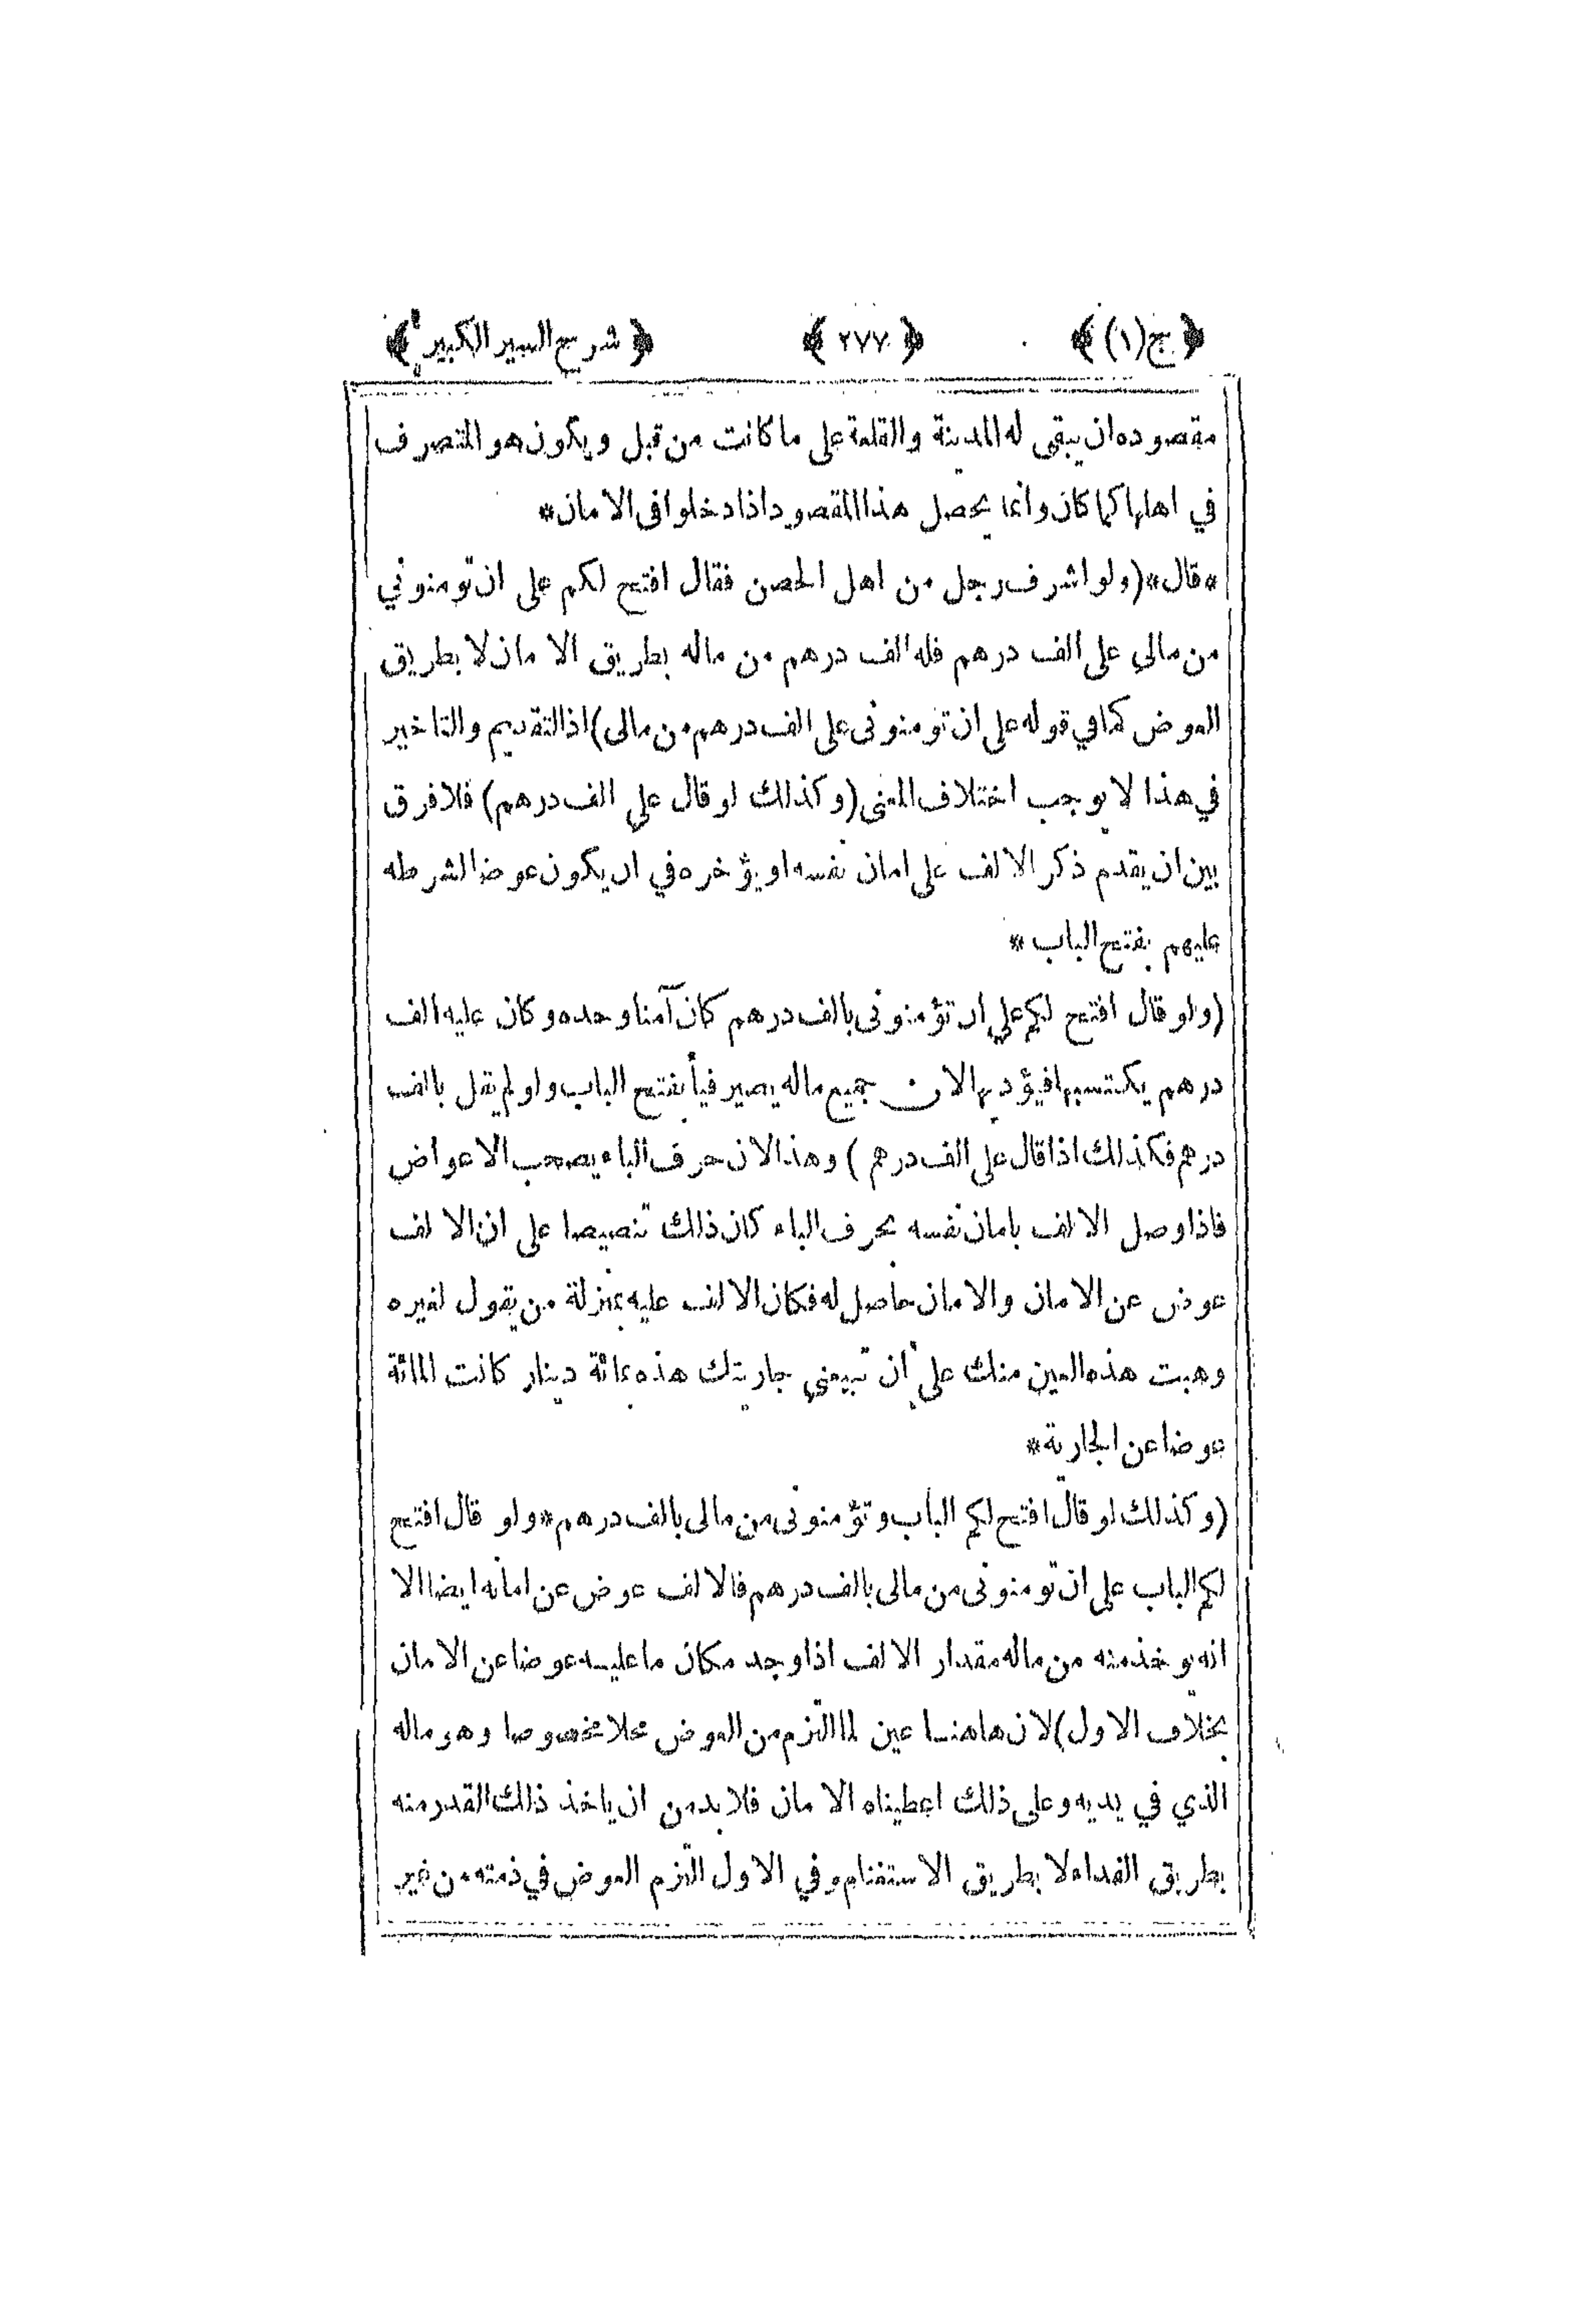 ﴿ ج (١) ﴾ ﴿ ٢٧٧ ﴾ ﴿ شرح السير الكبير ﴾
مقصوده ان يبقى له المدينة والقلعة على ما كانت من قبل ويكون هو المتصرف
في اهلها كما كان وانما يحصل هذا المقصود اذا دخلوا فى الامان *
* قال * (ولو اشرف رجل من اهل الحصن فقال افتح لكم على ان تومنوني
من مالى على الف درهم فله الف درهم من ماله بطريق الامان لا بطريق
العوض كما في قوله على ان تومنونى على الف درهم من مالى) اذ التقديم والتاخير
في هذا لا يوجب اختلاف المعنى (وكذلك لو قال على الف درهم) فلا فرق
بين ان يقدم ذكر الالف على امان نفسه او يؤخره في ان يكون عوضا لشرطه
عليهم بفتح الباب *
(ولو قال افتح لكم على ان تؤمنونى بالف درهم كان آمنا وحده وكان عليه الف
درهم يكتسبها فيؤديها لان جميع ماله يصير فيأ بفتح الباب ولو لم يقل بالف
درهم فكذلك اذا قال على الف درهم) وهذا لان حرف الباء يصحب الاعواض
فاذا وصل الالف بامان نفسه بحرف الباء كان ذلك تنصيصا على ان الالف
عوض عن الامان والامان حاصل له فكان الالف عليه بمنزلة من يقول لغيره
وهبت هذه العين منك على ان تبيعنى جاريتك هذه بمائة دينار كانت المائة
عوضا عن الجارية *
(وكذلك لو قال افتح لكم الباب وتؤمنونى من مالى بالف درهم * ولو قال افتح
لكم الباب على ان تومنونى من مالى بالف درهم فالالف عوض عن امانه ايضا الا
انه يوخذ منه من ماله مقدار الالف اذا وجد مكان ما عليه عوضا عن الامان
بخلاف الاول) لان هاهنا عين لما التزم من العوض محلا مخصوصا وهو ماله
الذي في يديه وعلى ذلك اعطيناه الامان فلا بد من ان ياخذ ذلك القدر منه
بطريق الفداء لا بطريق الاستغنام وفي الاول التزم العوض في ذمته من غير